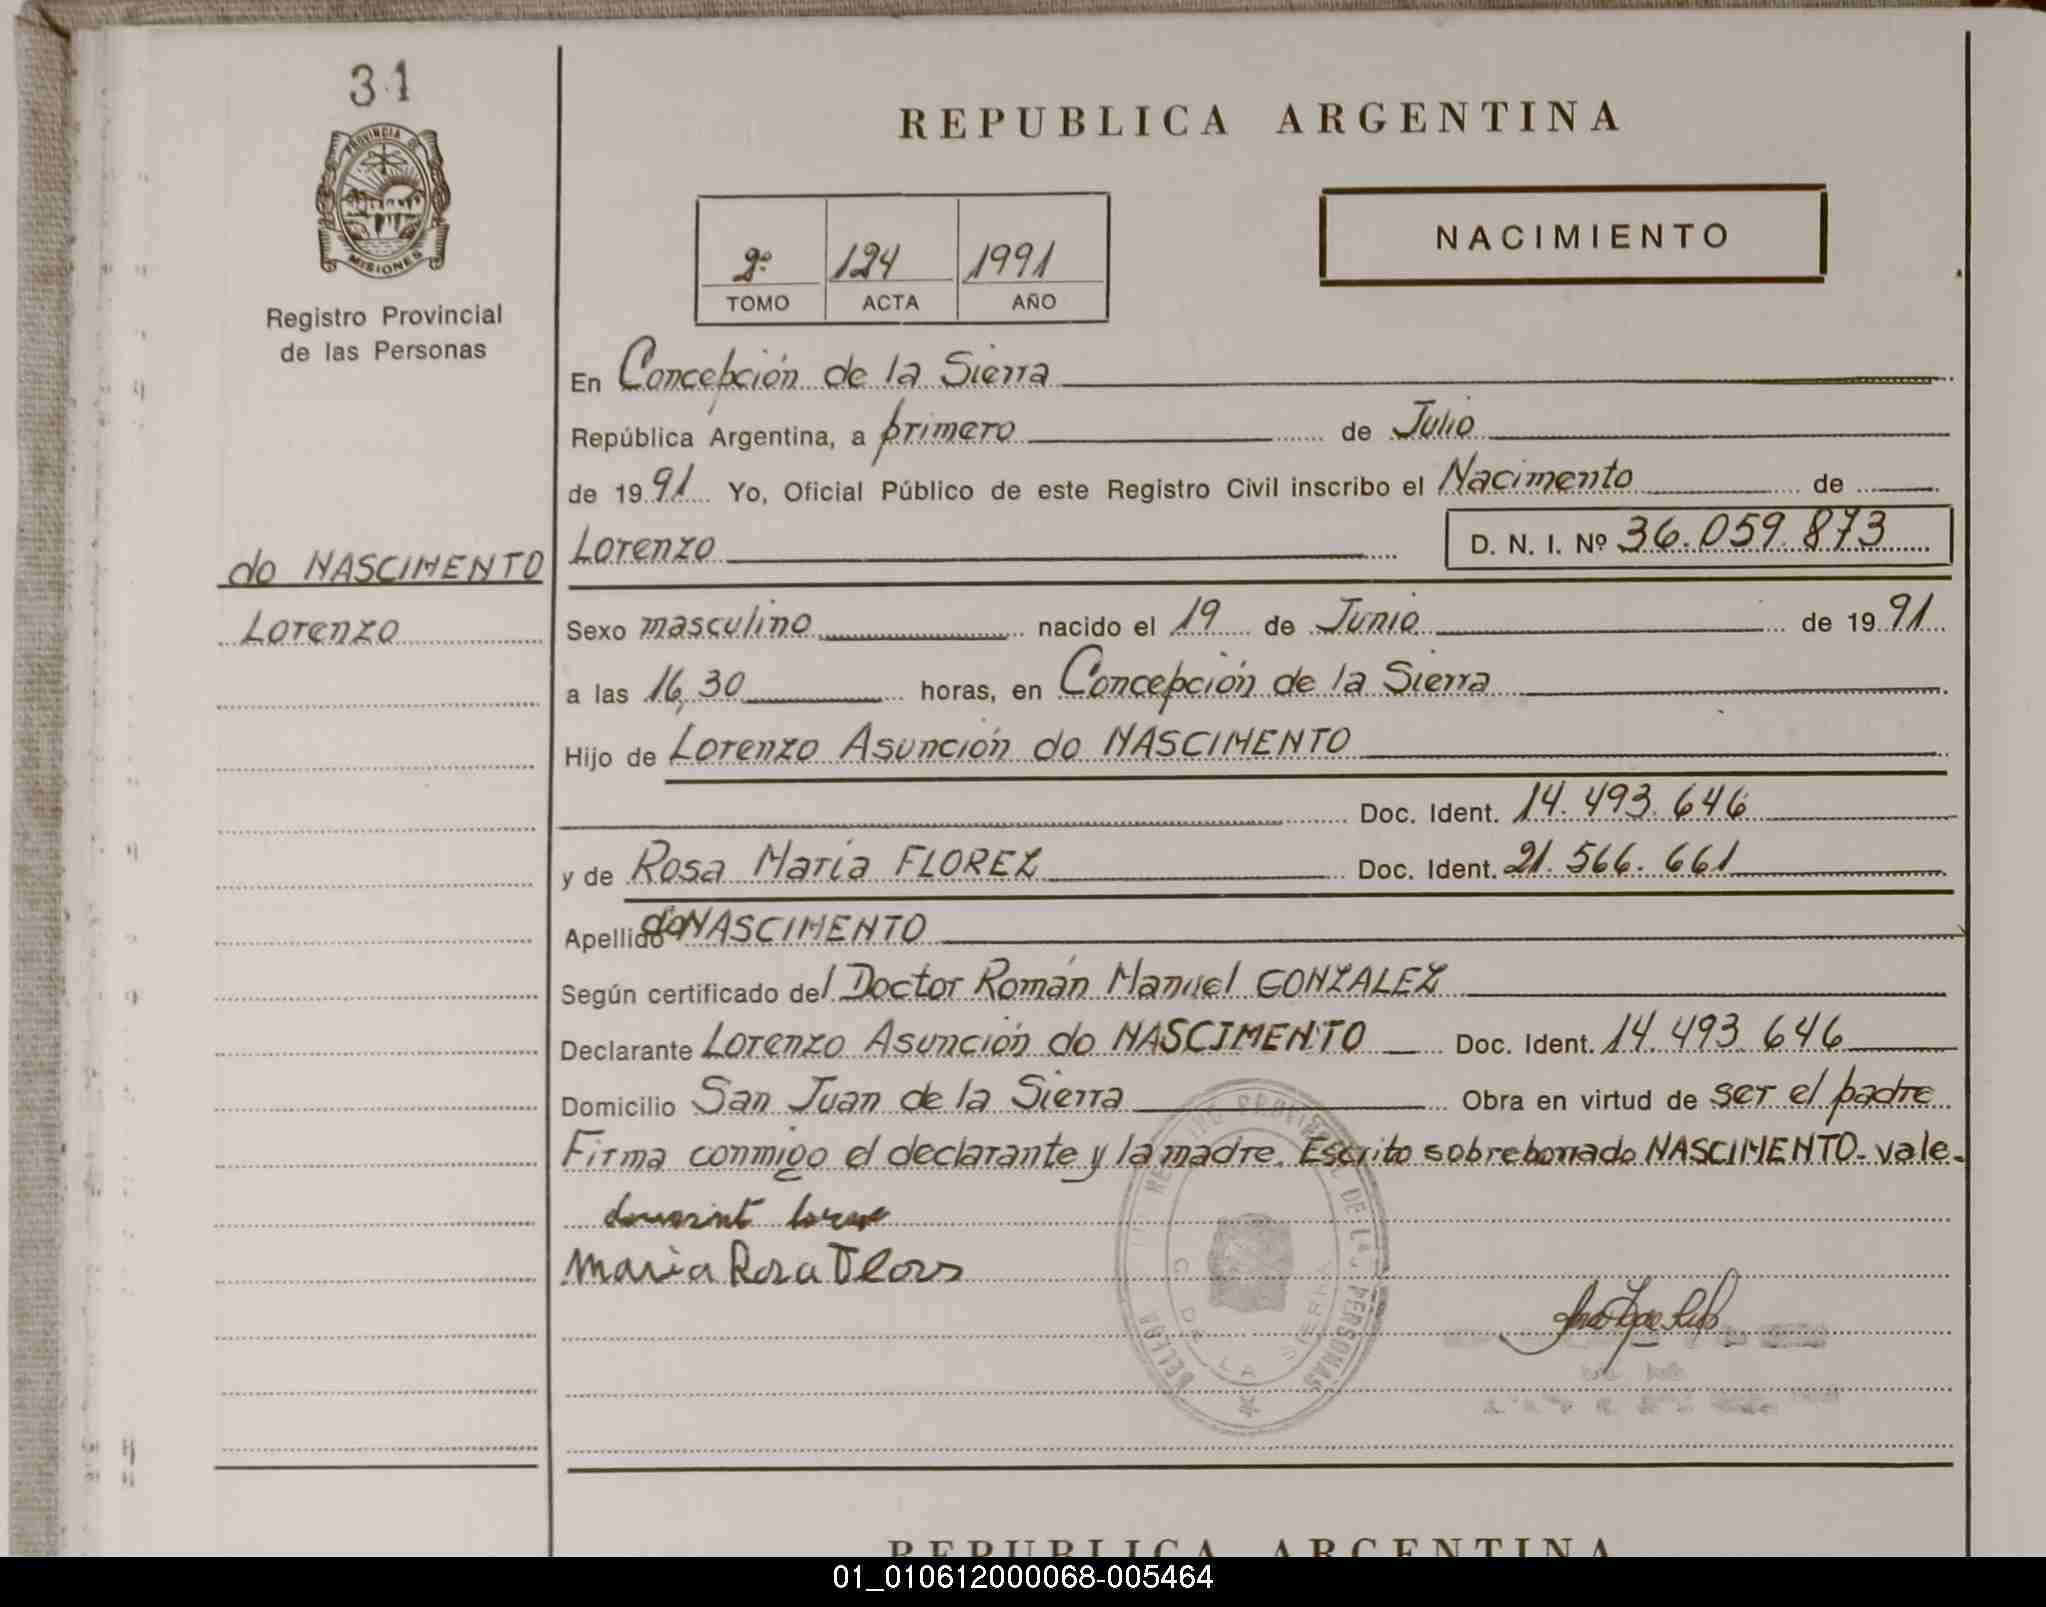 31
PROVINCIA DE
MISIONES
Registro Provincial
de las Personas
do NASCIMENTO
Lorenzo
REPUBLICA ARGENTINA
2º 124 1991
TOMO ACTA AÑO
NACIMIENTO
En Concepción de la Sierra
República Argentina, a primero de Julio
de 1991 Yo, Oficial Público de este Registro Civil inscribo el Nacimento de
Lorenzo D. N. I. Nº 36.059.873
Sexo masculino nacido el 19 de Junio de 1991
a las 16,30 horas, en Concepción de la Sierra
Hijo de Lorenzo Asunción do NASCIMENTO
Doc. Ident. 14.493.646
y de Rosa María FLOREZ Doc. Ident. 21.566.661
Apellido do NASCIMENTO
Según certificado del Doctor Román Manuel GONZALEZ
Declarante Lorenzo Asunción do NASCIMENTO Doc. Ident. 14.493.646
Domicilio San Juan de la Sierra Obra en virtud de ser el padre
Firma conmigo el declarante y la madre. Escrito sobreborrado NASCIMENTO- vale-
Maria Rosa
C. DE LA SIERRA
REPUBLICA ARGENTINA
01_010612000068-005464